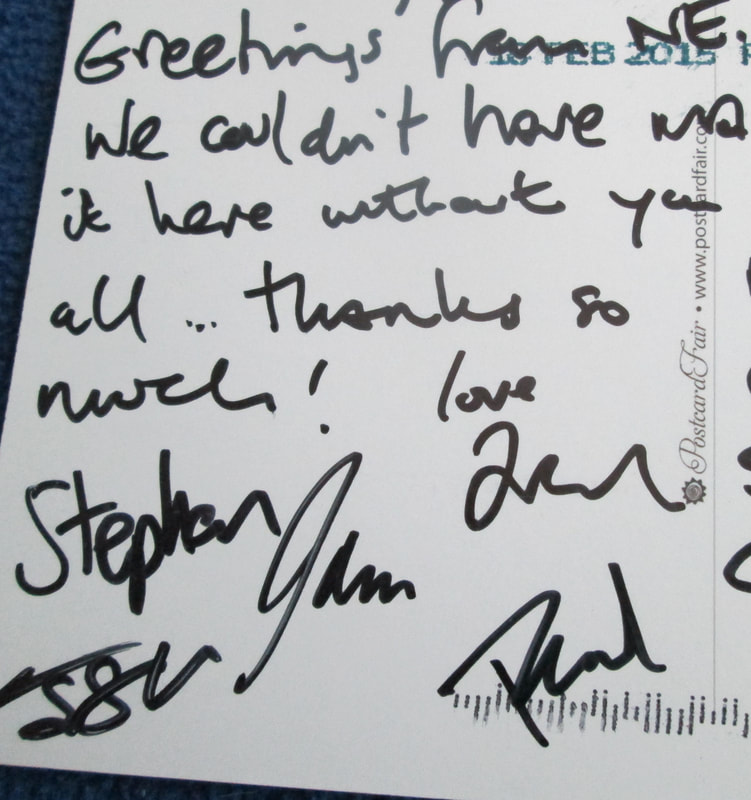 Greetings from NE.
18 FEB 2015
We couldn't have ma
it here without you
all ... thanks so
much! love
Stephen
PostcardFair • www.postcardfair.co